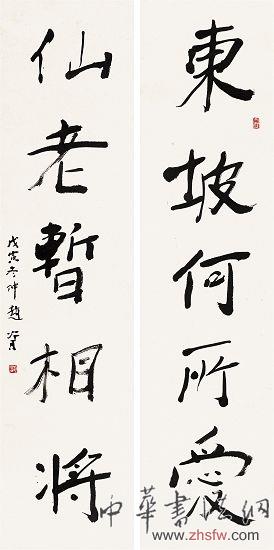 東坡何所愛
仙老暫相將
戊寅冬仲趙冷月
中華書法網
www.zhsfw.com